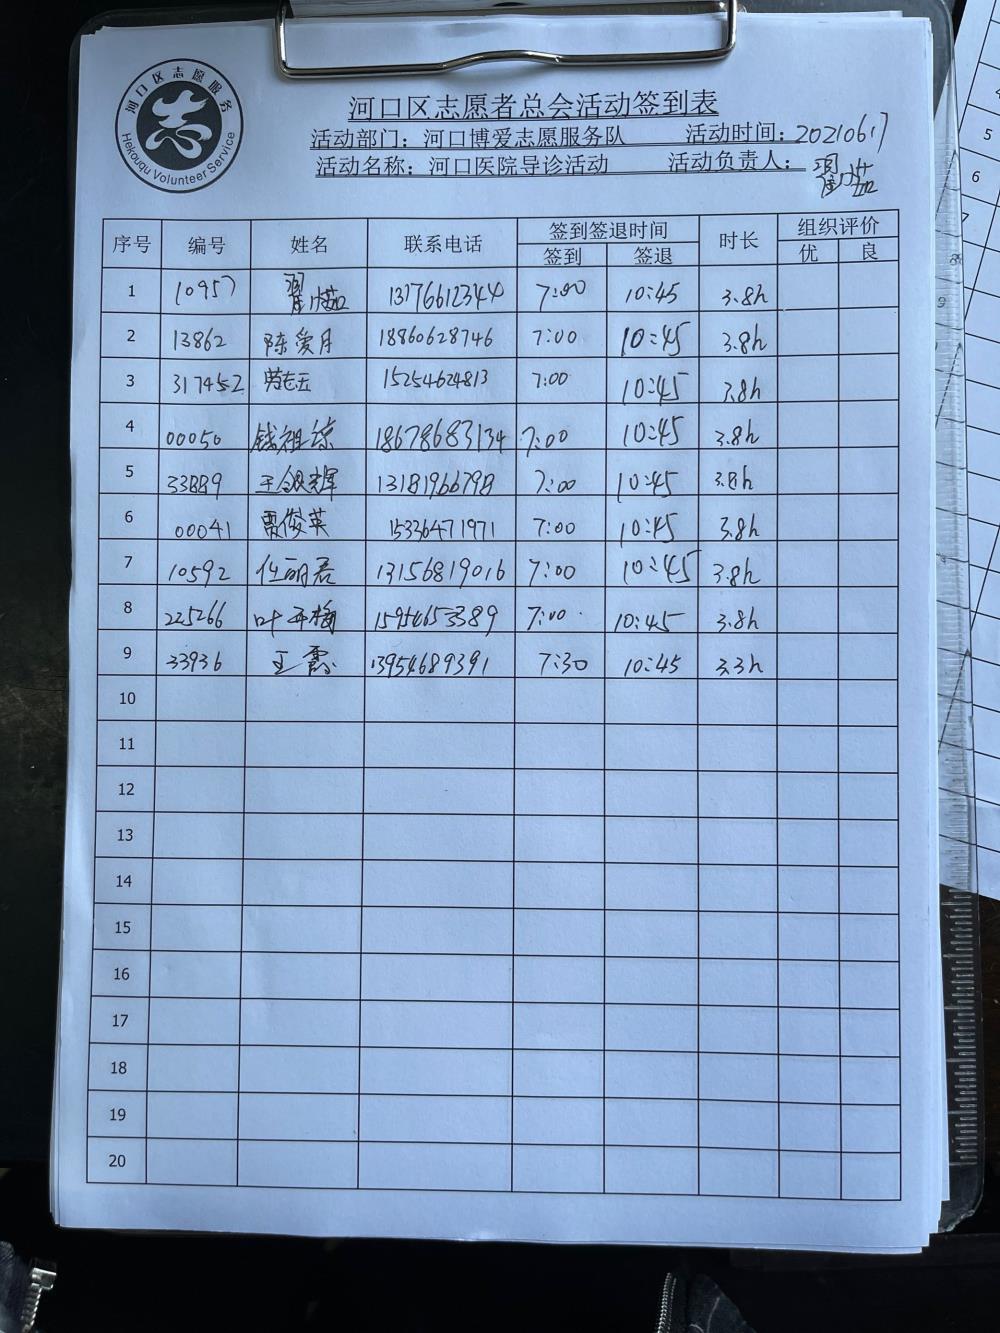 河口区志愿服务
Hekouqu Volunteer Service
河口区志愿者总会活动签到表
活动部门：河口博爱志愿服务队 活动时间：20210617
活动名称：河口医院导诊活动 活动负责人：
序号 编号 姓名 联系电话 签到签退时间 时长 组织评价
签到 签退 优 良
1 10957 13176612344 7:00 10:45 3.8h
2 13862 陈爱月 18860628746 7:00 10:45 3.8h
3 317452 15254624813 7:00 10:45 3.8h
4 00050 钱祖琼 18678683134 7:00 10:45 3.8h
5 33889 王银辉 13181966798 7:00 10:45 3.8h
6 00041 贾俊英 15336471971 7:00 10:45 3.8h
7 10592 任丽君 13156819016 7:00 10:45 3.8h
8 225266 15954653389 7:00 10:45 3.8h
9 33936 王霞 13954689391 7:30 10:45 3.3h
10
11
12
13
14
15
16
17
18
19
20
5
6
7